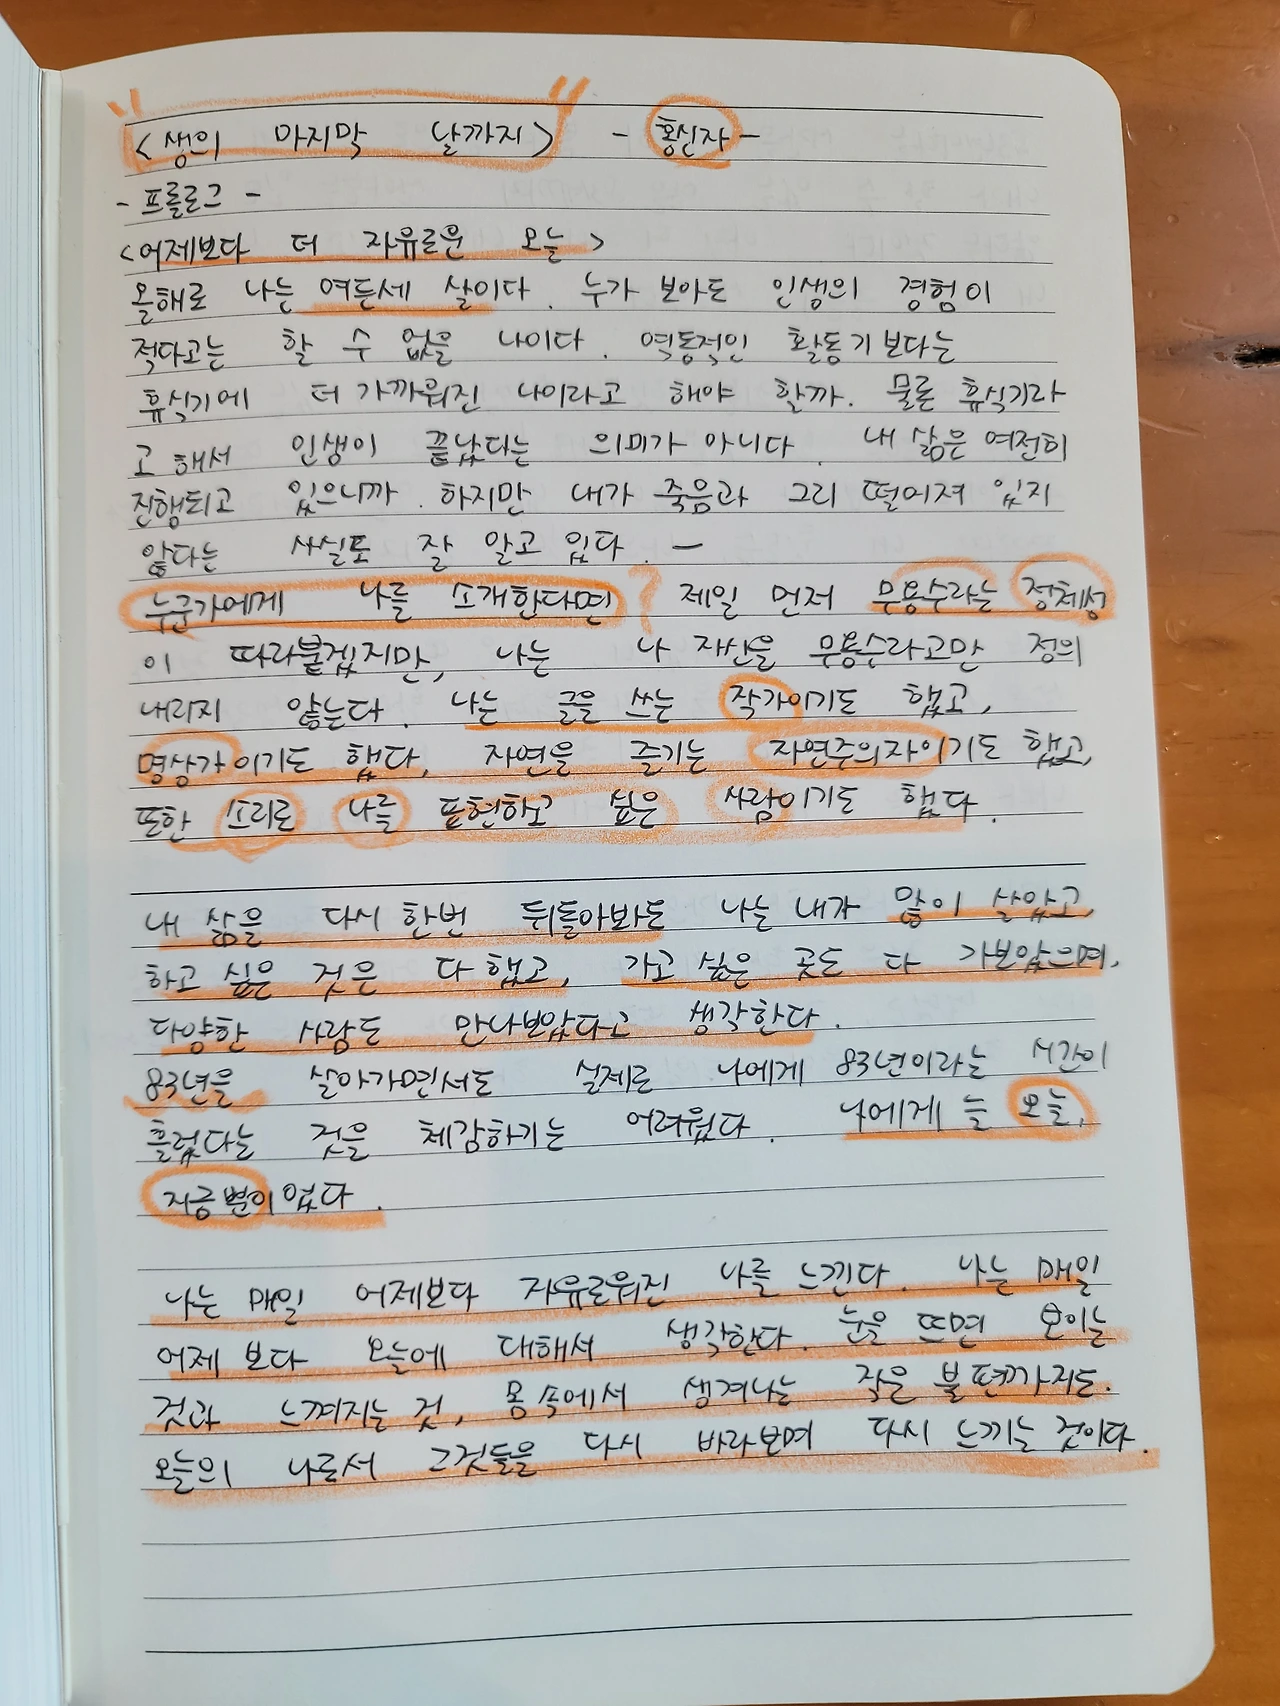 <생의 마지막 날까지> - 홍신자 -
- 프롤로그 -
<어제보다 더 자유로운 오늘>
올해로 나는 여든세 살이다. 누가 보아도 인생의 경험이
적다고는 할 수 없을 나이다. 역동적인 활동기보다는
휴식기에 더 가까워진 나이라고 해야 할까. 물론 휴식기라
고 해서 인생이 끝났다는 의미가 아니다. 내 삶은 여전히
진행되고 있으니까. 하지만 내가 죽음과 그리 떨어져 있지
않다는 사실도 잘 알고 있다. -
누군가에게 나를 소개한다면? 제일 먼저 무용수라는 정체성
이 따라붙겠지만, 나는 나 자신을 무용수라고만 정의
내리지 않는다. 나는 글을 쓰는 작가이기도 했고,
명상가이기도 했다, 자연을 즐기는 자연주의자이기도 했고,
또한 소리로 나를 표현하고 싶은 사람이기도 했다.
내 삶을 다시 한번 뒤돌아봐도 나는 내가 많이 살았고,
하고 싶은 것은 다 했고, 가고 싶은 곳도 다 가보았으며,
다양한 사람도 만나보았다고 생각한다.
83년을 살아가면서도 실제로 나에게 83년이라는 시간이
흘렀다는 것을 체감하기는 어려웠다. 나에게 늘 오늘,
지금뿐이었다.
나는 매일 어제보다 자유로워진 나를 느낀다. 나는 매일
어제 보다 오늘에 대해서 생각한다. 눈을 뜨면 보이는
것과 느껴지는 것, 몸 속에서 생겨나는 작은 불편까지도.
오늘의 나로서 그것들을 다시 바라보며 다시 느끼는 것이다.